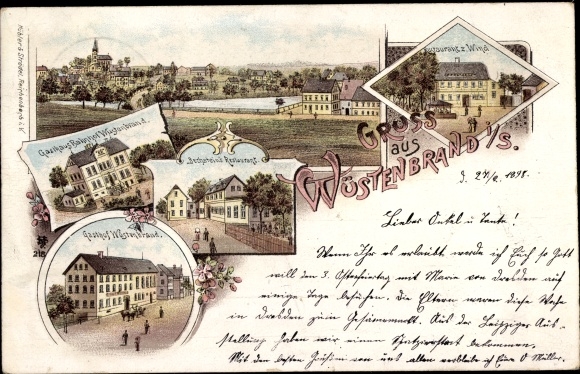 Köhler & Strößer, Reichenbach i.V.
Restaurant z. Wind
Gasthaus Bahnhof Wüstenbrand.
Restaurant.
Gruss
aus
Wüstenbrand i/S.
1898.
218
Gasthof Wüstenbrand.
Lieber Onkel u Tante!
Wenn Ihr es erlaubt werde ich Euch so Gott
will den 3. Osterfeiertag mit Marie von Dresden auf
einige Tage besuchen. Die Eltern waren diese Woche
in Dresden zum Aus der Leipziger Aus-
stellung haben wir einen bekommen.
Mit den besten Grüßen von uns allen verbleibe ich Eure O Müller.